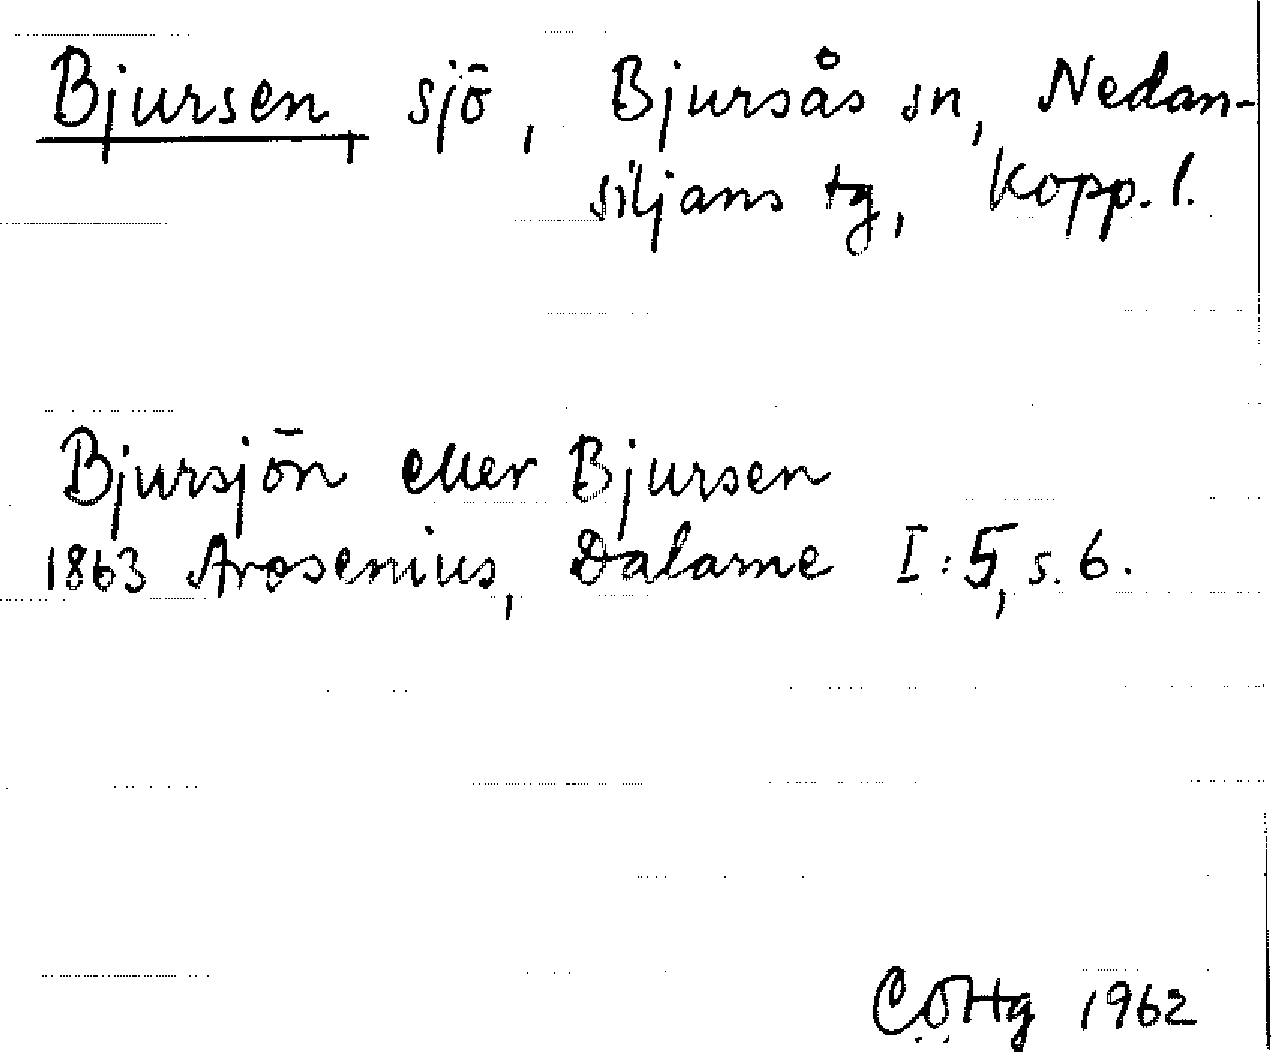 Bjursen, sjö, Bjursås sn, Nedan-
siljans tg, Kopp. l.
Bjursjön eller Bjursen
1863 Arosenius, Dalarne I:5, s. 6.
CÖHg 1962